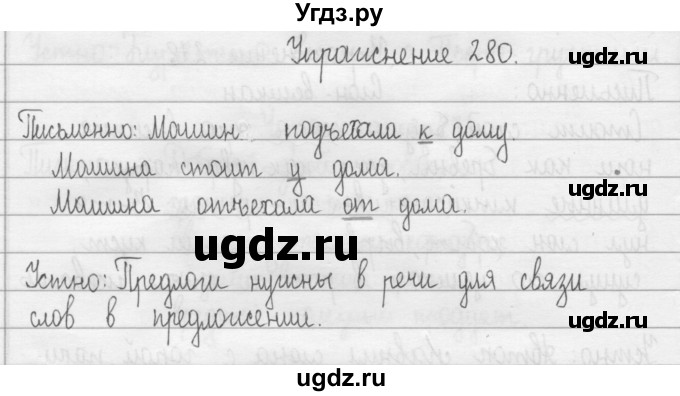 Угдз.ру
Упражнение 280.
ugdz.ru
Письменно: Машин подъехала к дому
Машина стоит у дома.
ugdz.ru
Машина отъехала от дома.
ugdz.ru
ugdz.ru
Устно: Предлоги нужны в речи для связи
слов в предложении.
ugdz.ru
ugdz.ru